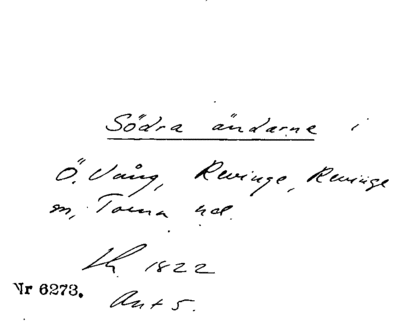 Södra ändarne i
Ö. Vång, Revinge, Revinge
sn, Torna hd.
Lh. 1822
Nr 6273. Akt 5.